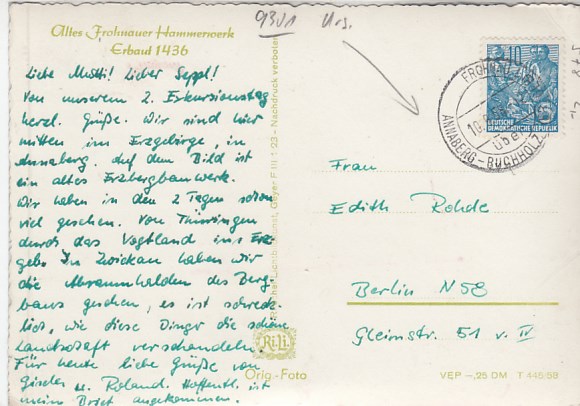 9301 Urs.
Altes Frohnauer Hammerwerk
Erbaut 1436
Liebe Mutti! Lieber Seppl!
Von unserem 2. Exkursionstag
herzl. Grüße. Wir sind hier
mitten im Erzgebirge, in
Annaberg. Auf dem Bild ist
ein altes Erzbergbauwerk.
Wir haben in den 2 Tagen schon
viel gesehen. Von Thüringen
durch das Vogtland ins Erz-
geb. In Zwickau haben wir
die Abraumhalden des Berg-
baus gesehen, es ist schreck-
lich, wie diese Dinger die schöne
Landschaft verschandeln.
Für heute liebe Grüße von
Gisela u. Roland. Hoffentl. ist
mein Brief angekommen.
Geyer F III 1 23 - Nachdruck verboten
RiLi
Orig.-Foto
10
DEUTSCHE
DEMOKRATISCHE REPUBLIK
FROHNAU
über
ANNABERG-BUCHHOLZ
Frau
Edith Rohde
Berlin N58
Gleimstr. 51 v. IV
VEP -,25 DM T 445/58